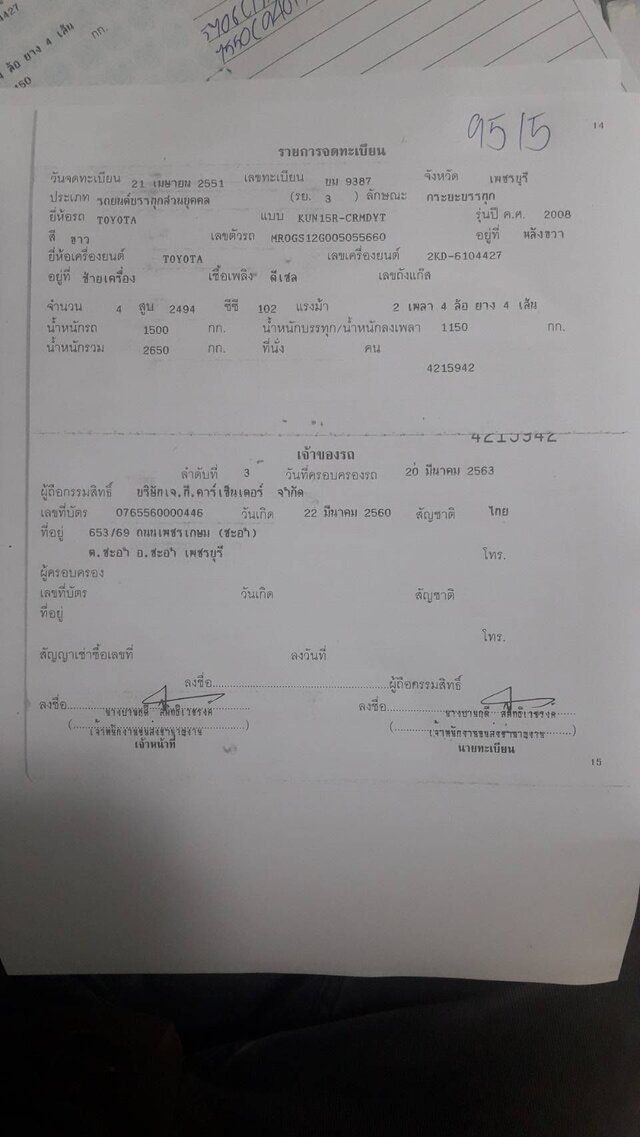 ล้อ ยาง 4 เส้น
กก.
95/5
14
รายการจดทะเบียน
วันจดทะเบียน 21 เมษายน 2551 เลขทะเบียน ยม 9387 จังหวัด เพชรบุรี
ประเภท รถยนต์บรรทุกส่วนบุคคล (รย. 3 ) ลักษณะ กระบะบรรทุก
ยี่ห้อรถ TOYOTA แบบ KUN15R-CRMDYT รุ่นปี ค.ศ. 2008
สี ขาว เลขตัวรถ MROGS12G005055660 อยู่ที่ หลังขวา
ยี่ห้อเครื่องยนต์ TOYOTA เลขเครื่องยนต์ 2KD-6104427
อยู่ที่ ซ้ายเครื่อง เชื้อเพลิง ดีเซล เลขถังแก๊ส
จำนวน 4 สูบ 2494 ซีซี 102 แรงม้า 2 เพลา 4 ล้อ ยาง 4 เส้น
น้ำหนักรถ 1500 กก. น้ำหนักบรรทุก/น้ำหนักลงเพลา 1150 กก.
น้ำหนักรวม 2650 กก. ที่นั่ง คน
4215942
4215942
เจ้าของรถ
ลำดับที่ 3 วันที่ครอบครองรถ 20 มีนาคม 2563
ผู้ถือกรรมสิทธิ์ บริษัทเจ.ที.คาร์เซ็นเตอร์ จำกัด
เลขที่บัตร 0765560000446 วันเกิด 22 มีนาคม 2560 สัญชาติ ไทย
ที่อยู่ 653/69 ถนนเพชรเกษม (ชะอำ)
ต.ชะอำ อ.ชะอำ เพชรบุรี โทร.
ผู้ครอบครอง
เลขที่บัตร วันเกิด สัญชาติ
ที่อยู่
โทร.
สัญญาเช่าซื้อเลขที่ ลงวันที่
ลงชื่อ ผู้ถือกรรมสิทธิ์
ลงชื่อ ลงชื่อ
เจ้าพนักงานขนส่งชำนาญงาน เจ้าพนักงานขนส่งชำนาญงาน
เจ้าหน้าที่ นายทะเบียน
15